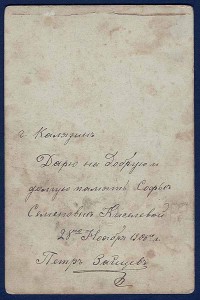 г Калязинъ
Дарю на добрую и
долгую память Софье
Семеновне Киселевой
28го Ноября 190
Петръ Зайцевъ